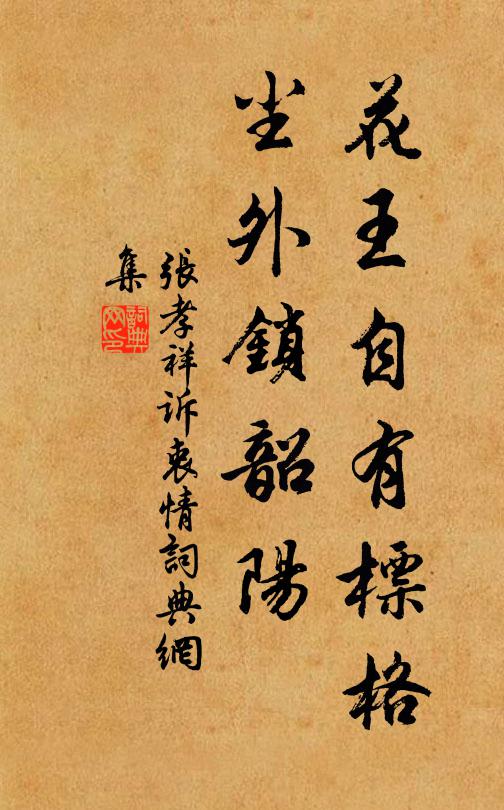 花王自有標格
尘外鎖韶陽
張孝祥訴衷情詞典網
集
詞典网印